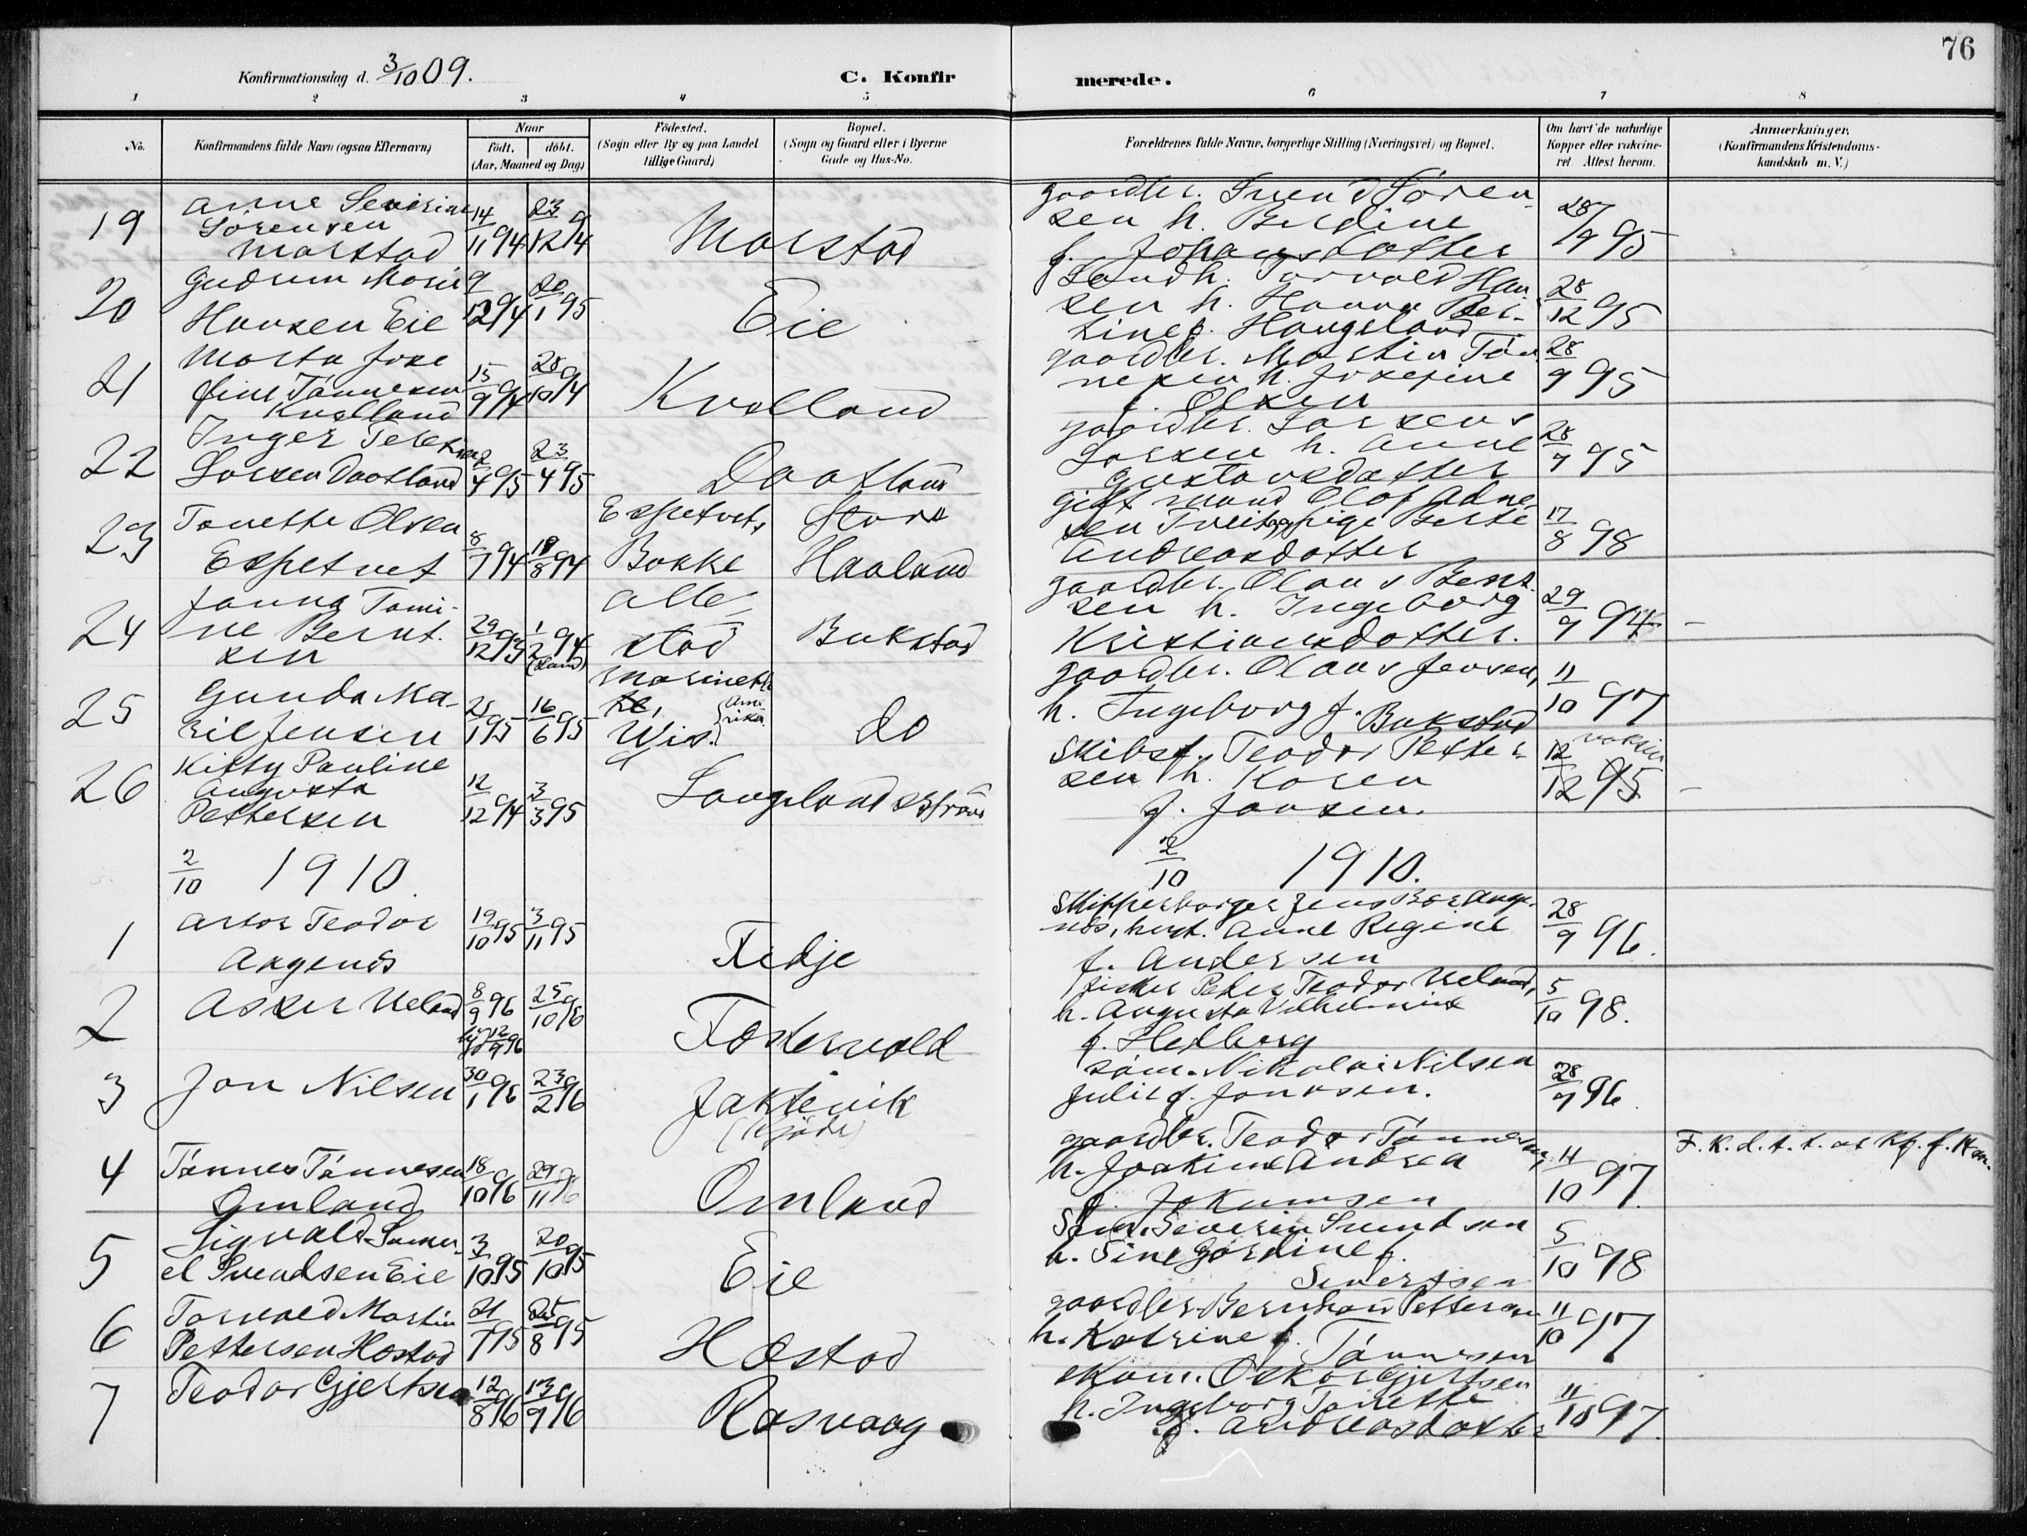 76
Konfirmationsdag d. 3/10 09.
C. Konfirmerede.
1 2 3 4 5 6 7 8
No.
Konfirmandens fulde Navn (ogsaa Efternavn)
Naar
født. døbt.
(Aar, Maaned og Dag)
Fødested.
(Sogn eller By og paa Landet
tillige Gaard)
Bopæl.
(Sogn og Gaard eller i Byerne
Gade og Hus-No.
Forældrenes fulde Navne, borgerlige Stilling (Næringsvei) og Bopæl.
Om havt de naturlige
Kopper eller vakcine-
ret Attest herom.
Anmærkninger.
(Konfirmandens Kristendoms-
kundskab m. V.)
19 Anne Severine
Sørensen
Marstad
14/11 94 23/12 94
Marstad
gaardbr. Svend Søren-
sen h. Berdine
f. Johansdatter
28/9 95
20 Gudrun Marie
Hansen Eie
9/12 94 20/1 95
Eie
Landh. Torvald Han
sen h. Hanna Ber-
tine f. Haugeland
28/12 95
21 Marta Jose
fine Tønnesen
Kvelland
15/9 94 28/10 94
Kvelland
gaardbr. Martin Tøn
nesen h. Josefine
f. Olsen
28/9 95
22 Inger
Larsen Daatland
2/4 95 23/4 95
Daatland
gaardbr. Lars
Larsen h. Anne
Gustavsdatter
28/9 95
23 Tonette Olsen
Espetvet
8/7 94 19/8 94
Espetvet,
Bakke
Store
Haaland
gift mand Olof Adne
sen Tveit og pige Berte
Andreasdatter
17/8 98
24 Janna Tomi-
ne Bernt-
sen
29/12 93 1/2 94
Alle
stad
Bukstad
gaardbr. Olaus Bernt
sen h. Ingeborg
Kristiansdatter.
29/9 94 –
25 Gunda Ma-
rie Jensen
25/1 95 16/6 95
Marinette,
Wis. (Ame
rika.
do
gaardbr. Olaus Jensen,
h. Ingeborg f. Bukstad
11/10 97
26 Kitty Pauline
Augusta
Pettersen
12/12 94 3/3 95
Langelandsstrand
Skibsf. Teodor Petter
sen h. Karen
f. Jansen.
12/12 95 –
2/10 1910.
2/10 1910.
1 Artor Teodor
Angenæs
19/10 95 3/11 95
Fedje
Skipperborger Jens Bær Ange-
næs, hust. Anne Regine
f. Andersen
28/9 96.
2 Asker Ueland
8/9 96 25/10 96
Fostervold
fisker Peter Teodor Ueland,
h. Augusta Vilhelmine
f. Hedberg
5/10 98.
3 Jon Nilsen
30/1 96 23/2 96
Jaktevik
søm. Nikolai Nilsen
Julie f. Jonassen.
28/9 96.
4 Tønnes Tønnesen
Omland
18/10 96 29/11 96
Omland
gaardbr. Teodor Tønnesen,
h. Joakine Andrea
f. Jokumsen
11/10 97.
5 Sigvald Samu-
el Svendsen Eie
3/10 95 20/10 95
Eie
Søm. Severin Svendsen
h. Sine Gordine f.
Sivertsen
5/10 98
6 Torvald Martin
Pettersen Hæstad
21/7 95 25/8 95
Hæstad
gaardbr. Bernhard Pettersen
h. Katrine f.
Tønnesen
11/10 97
7 Teodor Gjertsen
12/8 96 13/9 96
Rasvaag
Skom. Oskar Gjertsen
h. Ingeborg Tonette
f. Andreasdatter
11/10 97.